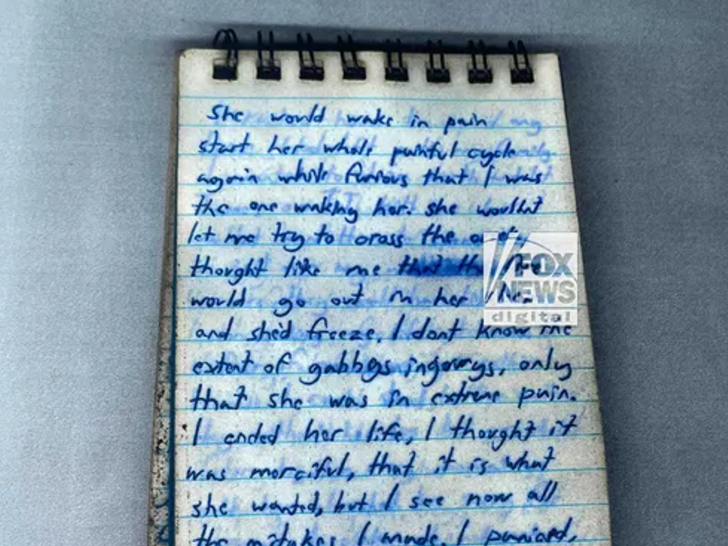 she would wake in pain
start her whole painful cycle
again while furious that I was
the one waking her. she wouldnt
let me try to cross the
thought like me that the
would go out in her
and she'd freeze, I dont know the
extent of gabbys ingurys, only
that she was in extreme pain.
I ended her life, I thought it
was merciful, that it is what
she wanted, but I see now all
the mistakes I made. I paniced,
FOX
NEWS
digital